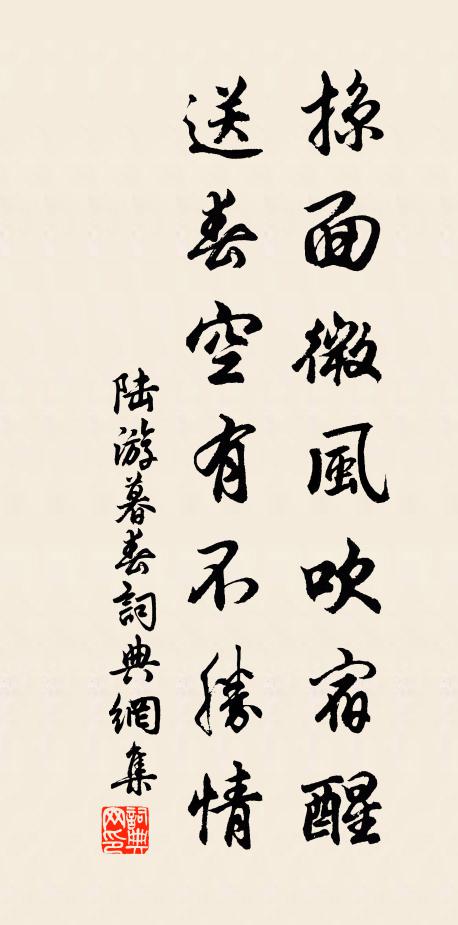 掠面微風吹宿醒
送春空有不勝情
陆游暮春詞典網集
詞典网印